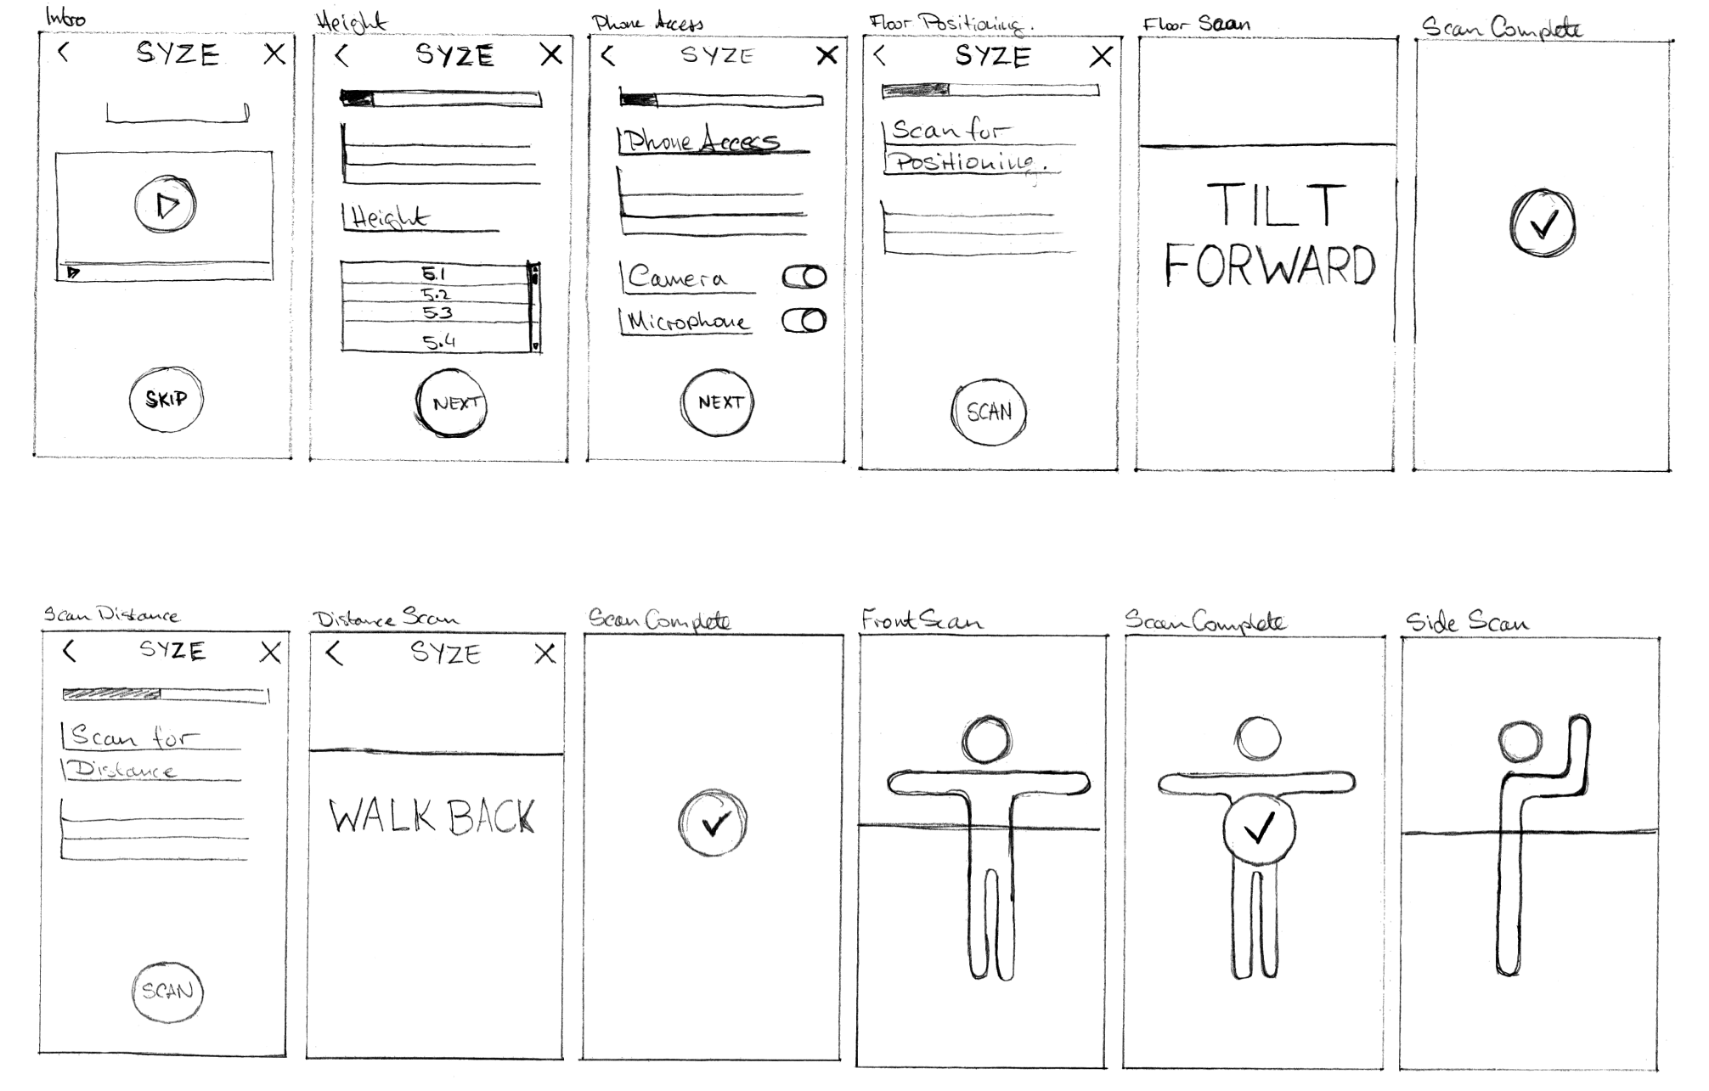 Intro
< SYZE X
SKIP
Height
< SYZE X
Height
5.1
5.2
5.3
5.4
NEXT
Phone Access
< SYZE X
Phone Access
Camera
Microphone
NEXT
Floor Positioning.
< SYZE X
Scan for
Positioning.
SCAN
Floor Scan
TILT
FORWARD
Scan Complete
Scan Distance
< SYZE X
Scan for
Distance
SCAN
Distance Scan
< SYZE X
WALK BACK
Scan Complete
Front Scan
Scan Complete
Side Scan